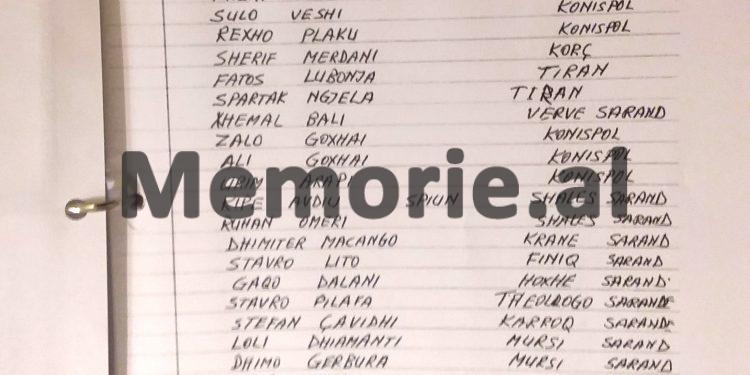 SULO VESHI KONISPOL
REXHO PLAKU KONISPOL
SHERIF MERDANI KORÇ
FATOS LUBONJA TIRAN
SPARTAK NGJELA TIRAN
XHEMAL BALI VERVE SARAND
ZALO GOXHAI KONISPOL
ALI GOXHAI KONISPOL
ARAPI KONISPOL
Memorie.al
AVDIU SPIUN SHALES SARAND
OMERI SHALES SARAND
DHIMITER MACANGO KRANE SARAND
STAVRO LITO FINIQ SARAND
GAQO DALANI HOXHE SARAND
STAVRO PILAFA THEOLLOGO SARANDE
STEFAN ÇAVIDHI KARROQ SARANDE
LOLI DHIAMANTI MURSI SARAND
DHIMO GERBURA MURSI SARAND